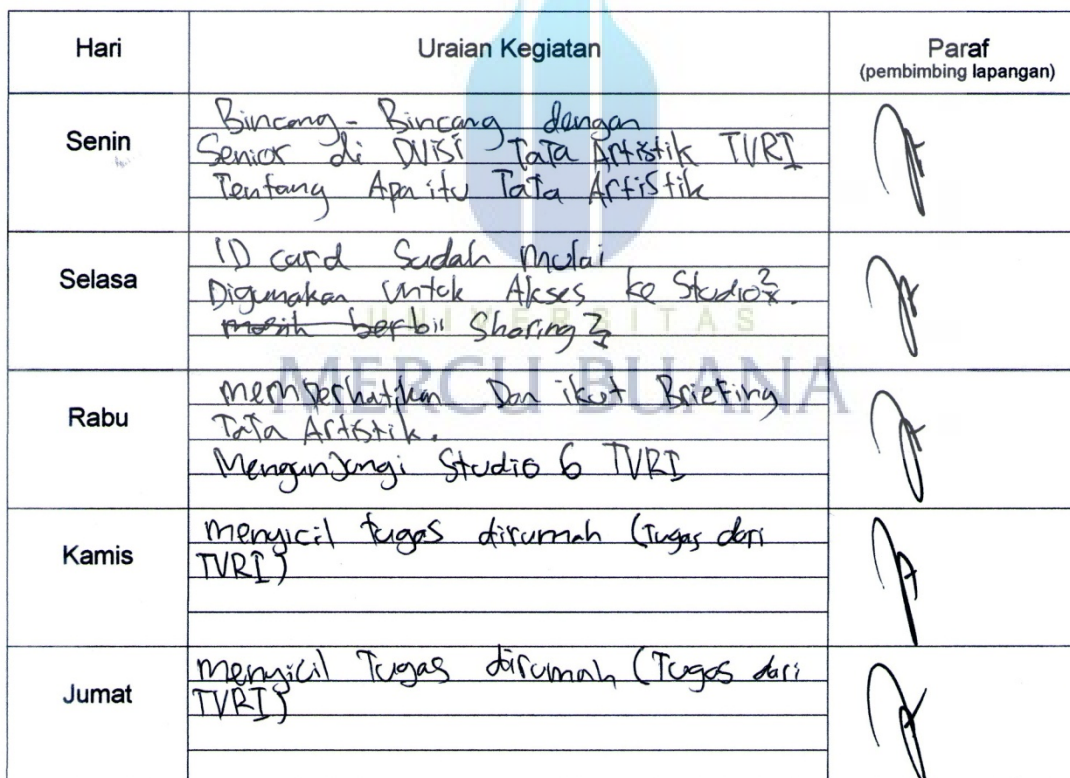 Hari Uraian Kegiatan Paraf
(pembimbing lapangan)
Senin
Bincang - Bincang dengan
Senior di DIVISI TaTa Artistik TVRI
Tentang Apa itu TaTa Artistik
Selasa
ID card Sudah mulai
Digunakan untuk Akses ke Studio2.
masih berbi Sharing2
UNIVERSITAS
MERCU BUANA
Rabu
memperhatikan Dan ikut Briefing
TaTa Artistik.
Mengunjungi Studio 6 TVRI
Kamis
menyicil tugas dirumah (Tugas dari
TVRI)
Jumat
menyicil Tugas dirumah (Tugas dari
TVRI)